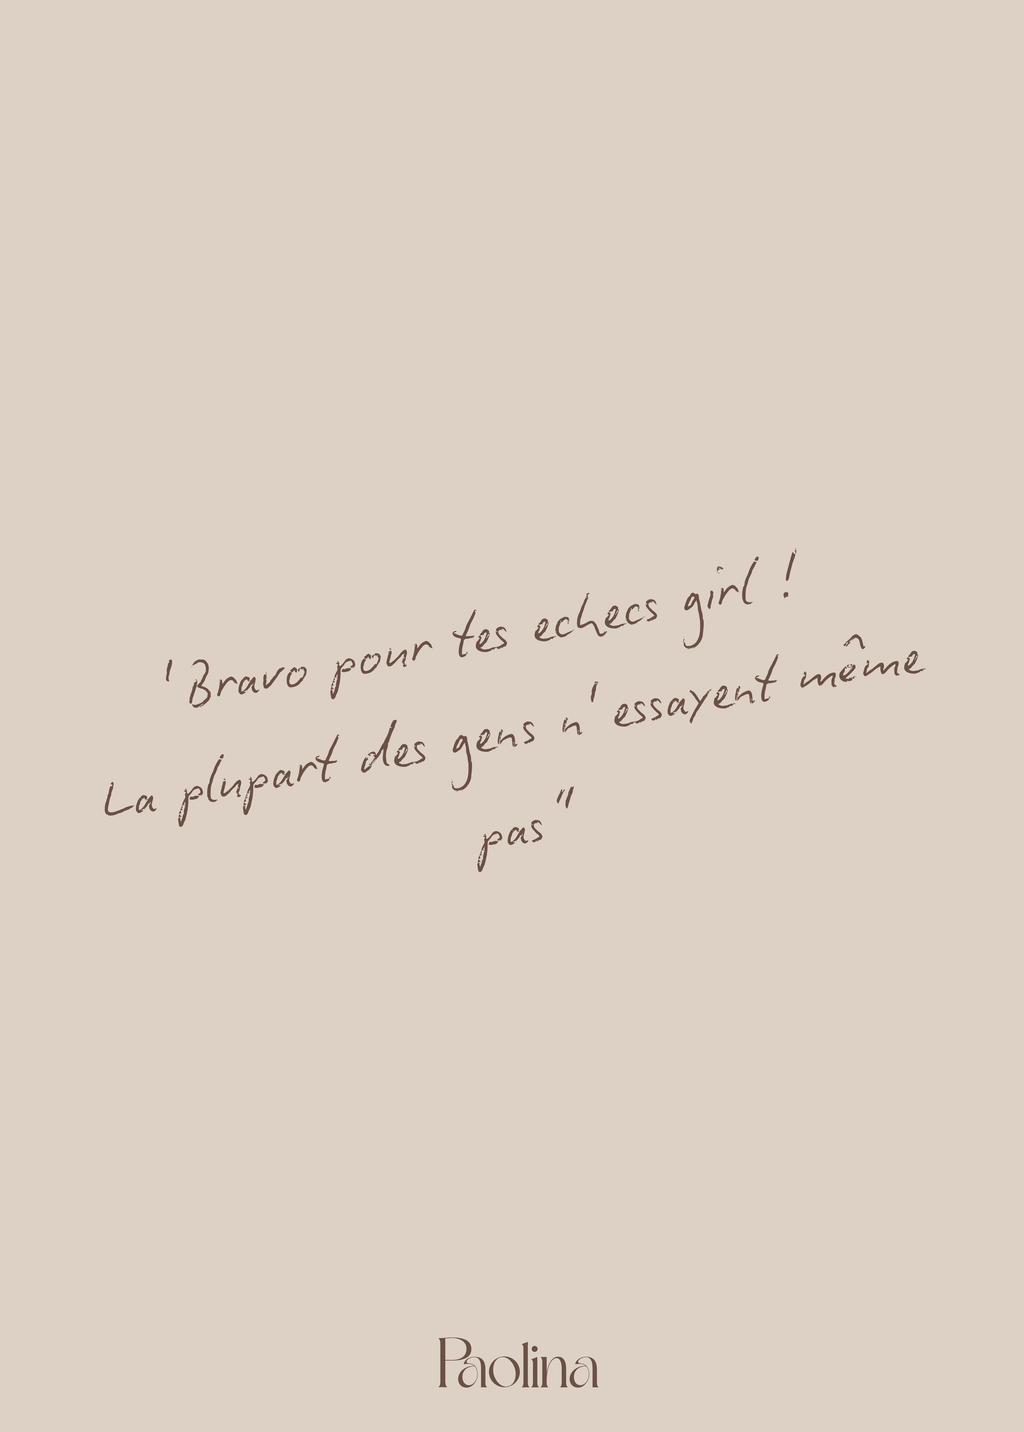 'Bravo pour tes echecs girl !
La plupart des gens n'essayent même
pas"
Paolina